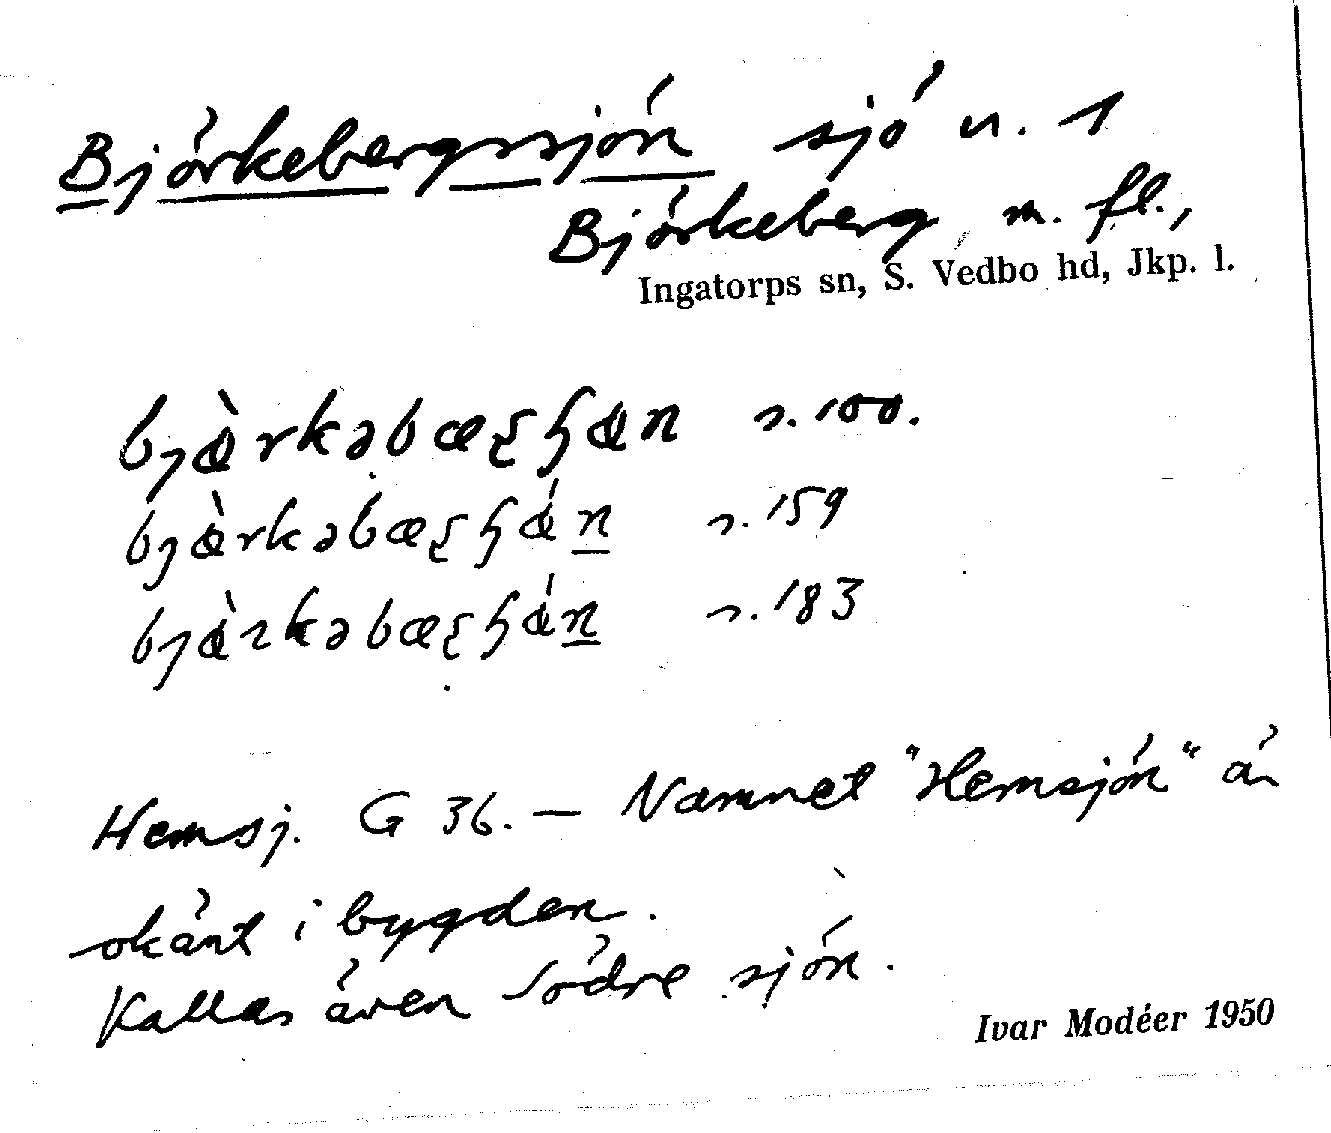 Björkebergssjön sjö n. 1
Björkeberg m. fl.,
Ingatorps sn, S. Vedbo hd, Jkp. l.
s. 100.
s. 159
s. 183
Hemsj. G 36. — Namnet "Hemsjön" är
okänt i bygden.
Kallas även Södre sjön.
Ivar Modéer 1950